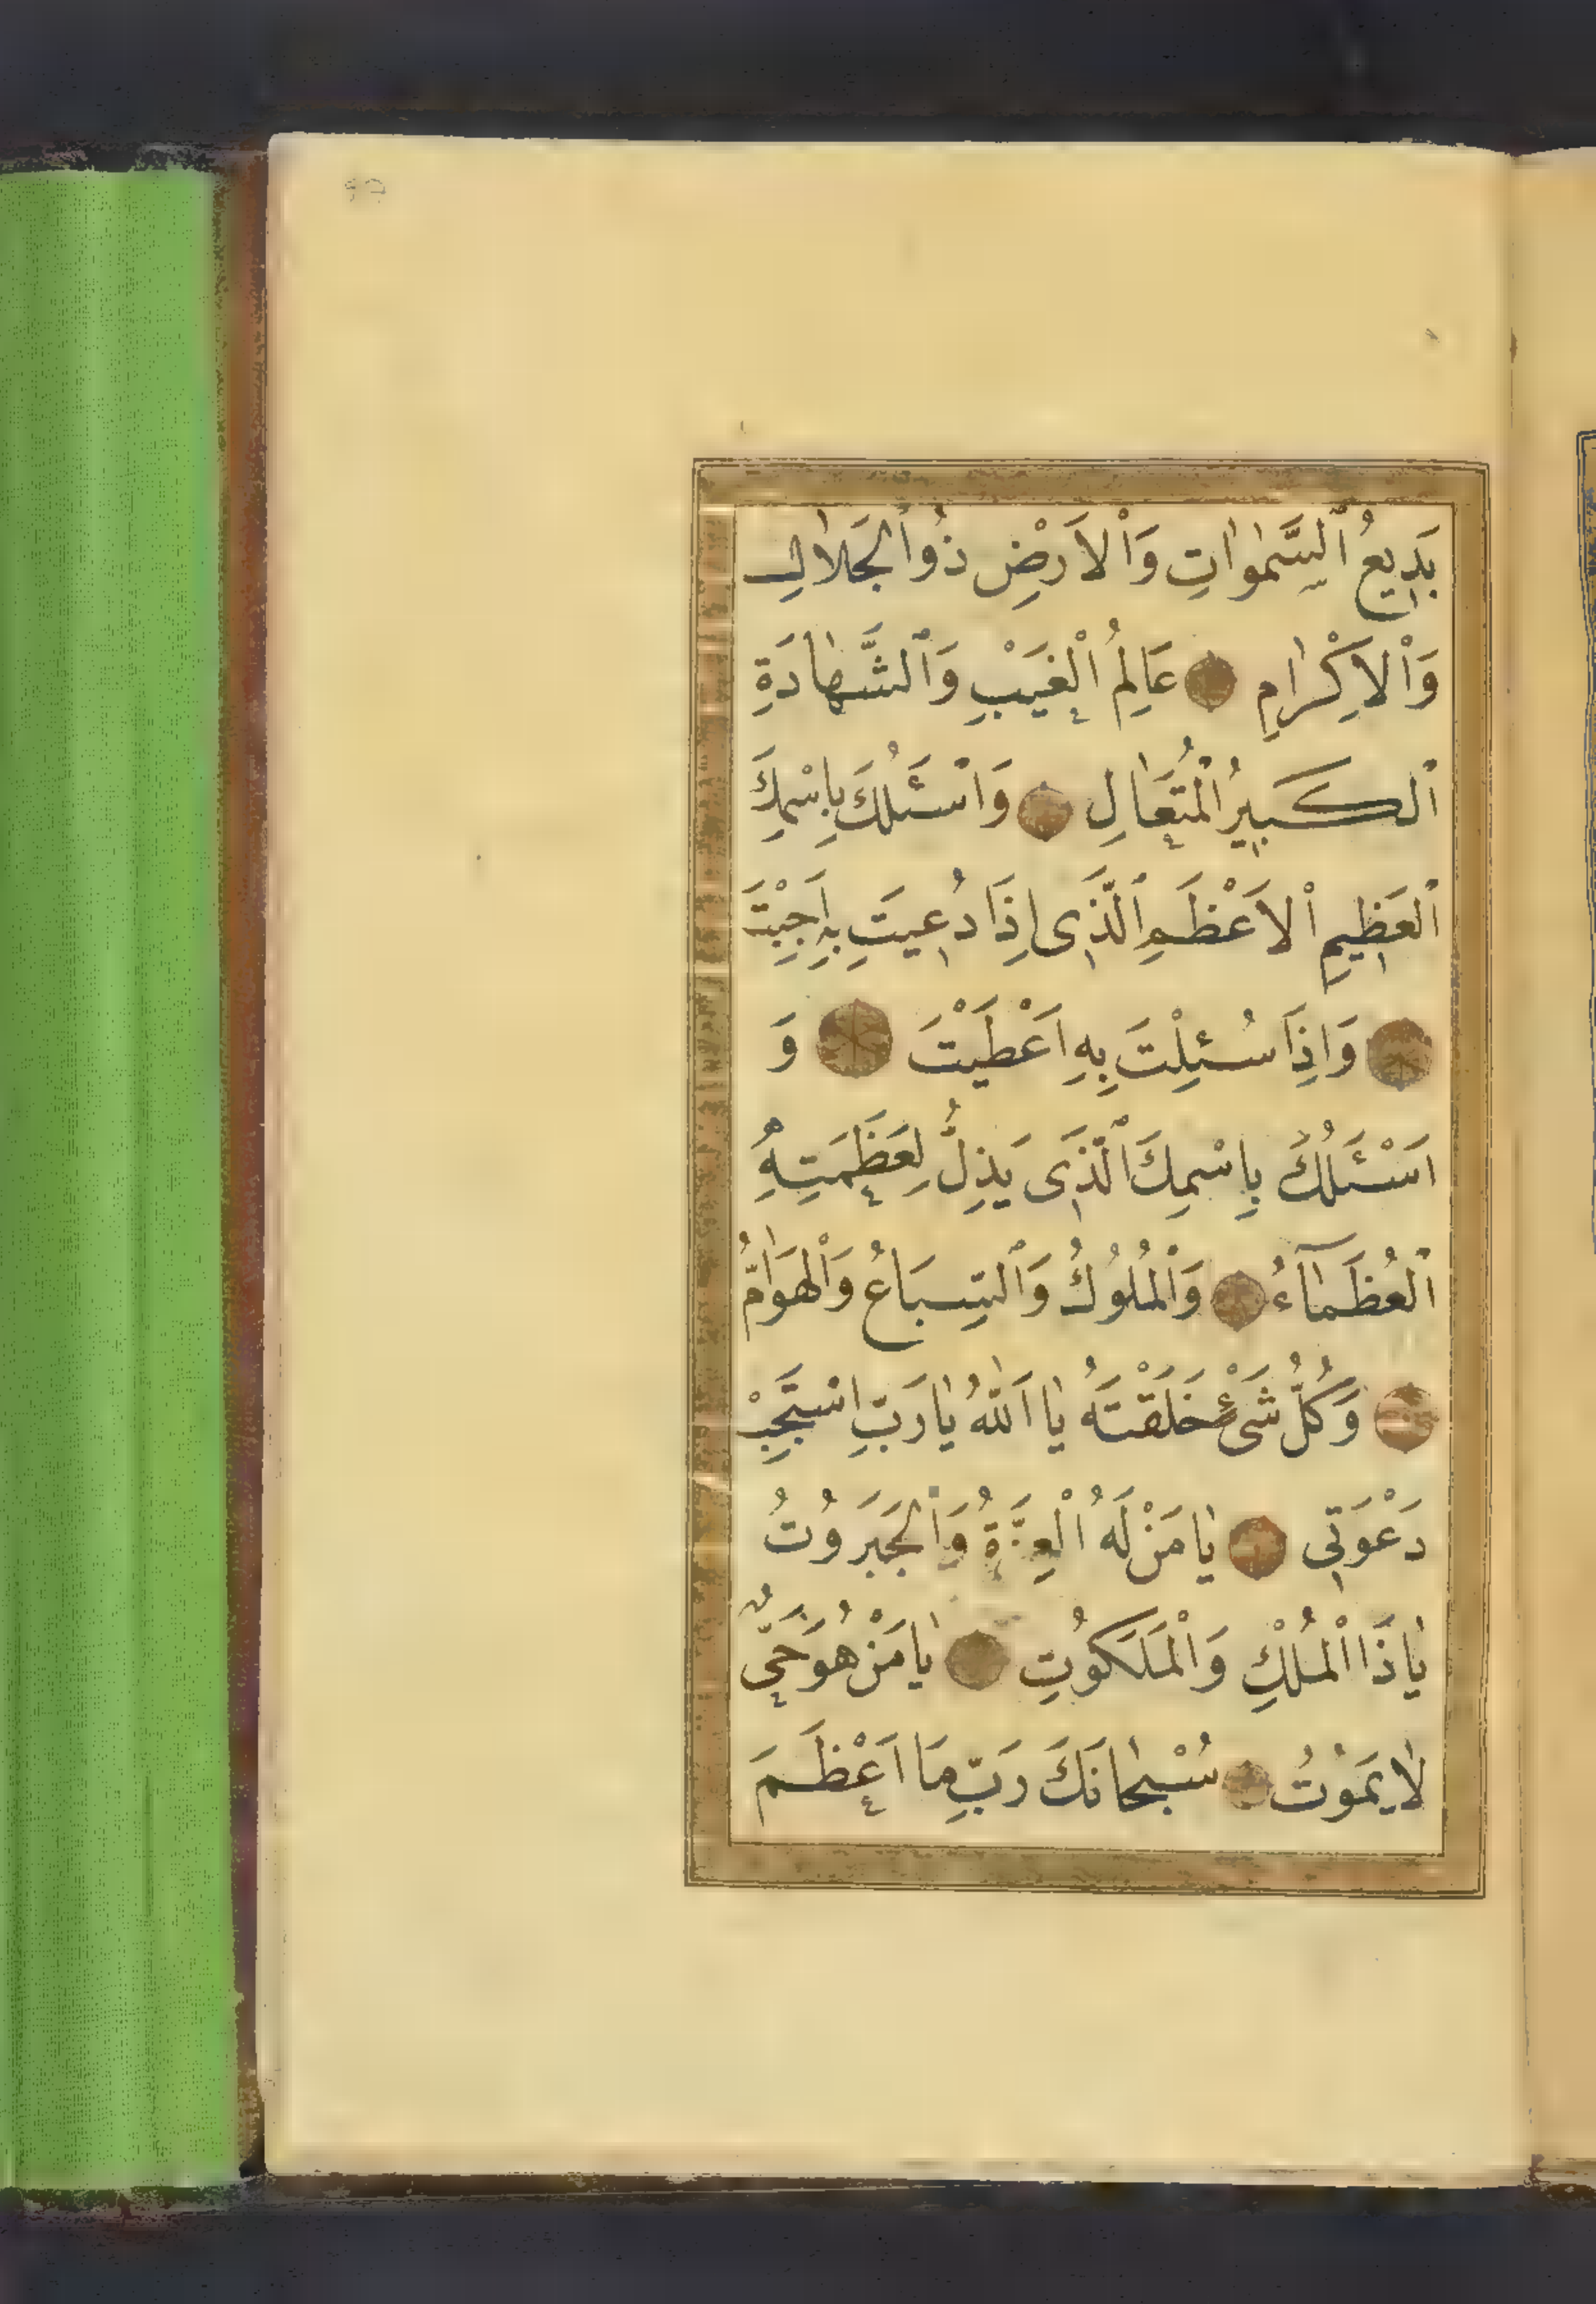 بَدِيعُ ٱلسَّمٰوٰاتِ وَٱلْاَرْضِ ذُو ٱلْجَلٰالِ
وَٱلْاِكْرٰامِ عَالِمُ ٱلْغَيْبِ وَٱلشَّهٰادَةِ
ٱلْكَبِيرُ ٱلْمُتَعٰالِ وَاَسْئَلُكَ بِاِسْمِكَ
ٱلْعَظِيمِ ٱلْاَعْظَمِ ٱلَّذِى اِذَا دُعِيتَ بِهِ اَجِبْتَ
وَاِذَا سُئِلْتَ بِهِ اَعْطَيْتَ وَ
اَسْئَلُكَ بِاِسْمِكَ ٱلَّذِى يَذِلُّ لِعَظَمَتِهِ
ٱلْعُظَمٰآءُ وَٱلْمُلُوكُ وَٱلسِّبَاعُ وَٱلْهَوٰامُّ
وَكُلُّ شَىْءٍ خَلَقْتَهُ يٰا اَللّٰهُ يٰا رَبِّ اسْتَجِبْ
دَعْوَتِى يٰا مَنْ لَهُ ٱلْعِزَّةُ وَٱلْجَبَرُوتُ
يٰا ذَا ٱلْمُلْكِ وَٱلْمَلَكُوتِ يٰا مَنْ هُوَ حَىٌّ
لٰا يَمُوْتُ سُبْحٰانَكَ رَبِّ مَا اَعْظَمَ